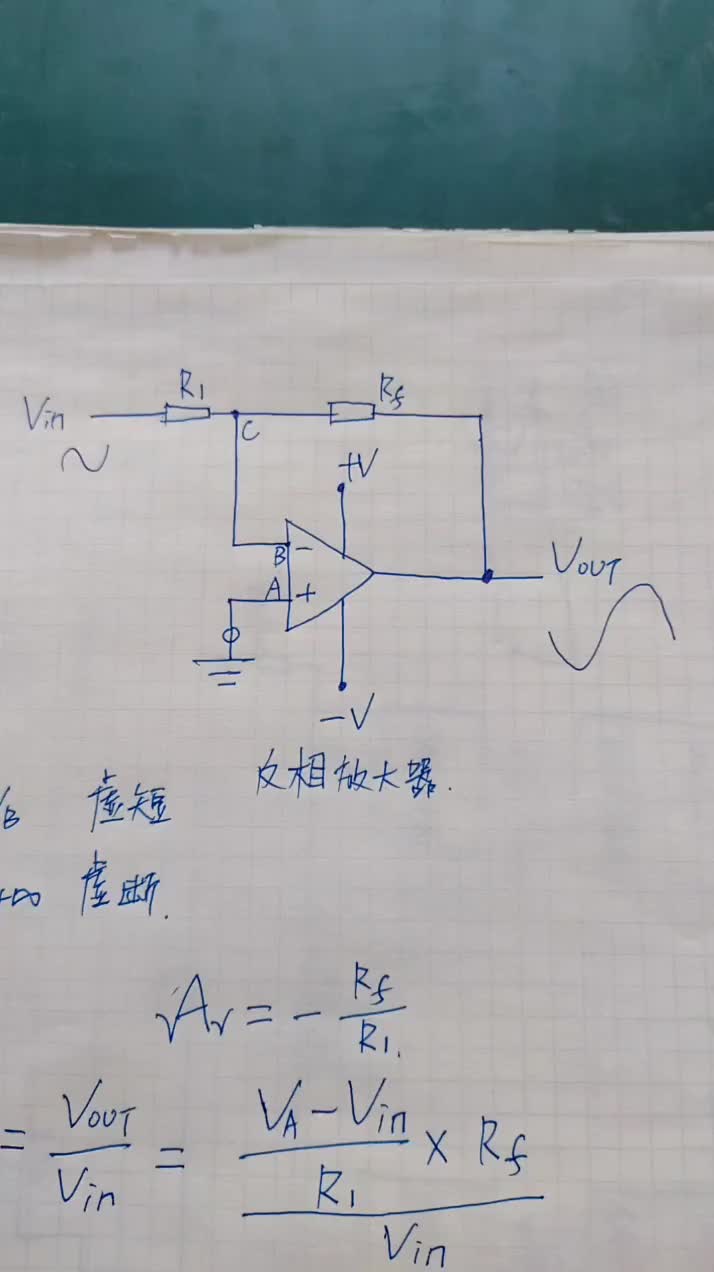 R1
Rf
Vin
C
+V
B -
A +
VOUT
-V
反相放大器.
B 虚短
+∞ 虚断.
√Av = - Rf / R1.
= VOUT / Vin = (VA - Vin) / R1 × Rf / Vin